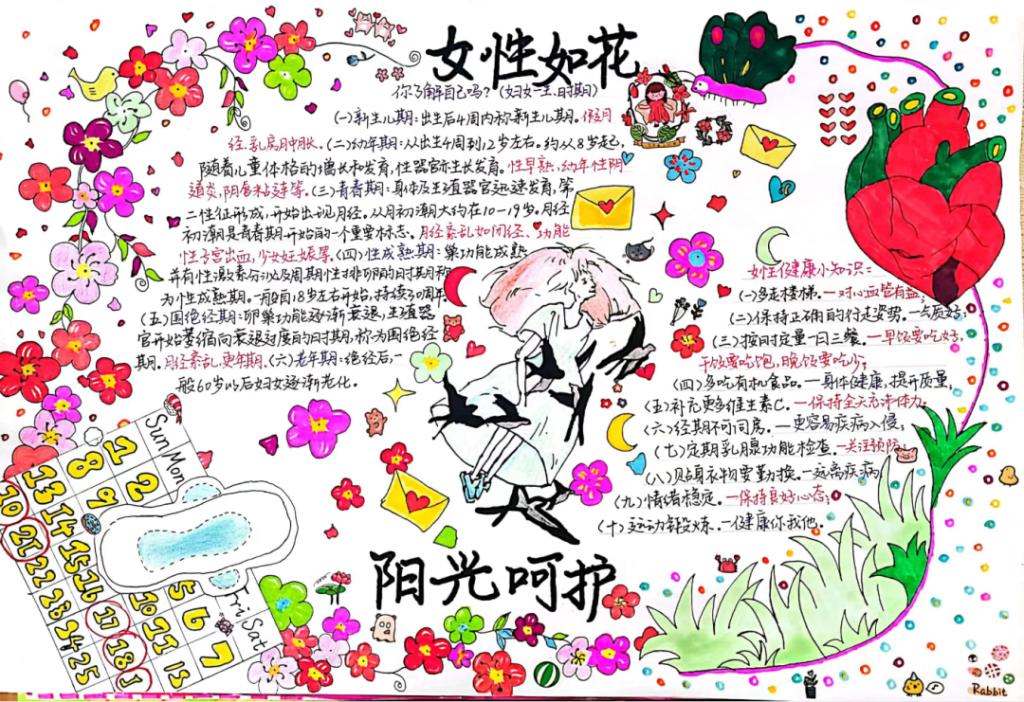 女性如花
你了解自己吗？（妇女一生、时期）
（一）新生儿期：出生后4周内称新生儿期。假月
经、乳房肿胀。（二）幼年期：从出生4周到12岁左右。约从8岁起，
随着儿童体格的增长和发育，性器官亦生长发育。性早熟，幼年性阴
道炎，阴唇粘连等。（三）青春期：身体及生殖器官迅速发育，第
二性征形成，开始出现月经。从月初潮大约在10-19岁。月经
初潮是青春期开始的一个重要标志。月经紊乱如闭经、功能
性子宫出血，少女妊娠等。（四）性成熟期：巢功能成熟
并有性激素分泌及周期性排卵的时期称
为性成熟期。一般自18岁左右开始，持续30周年
（五）围绝经期：卵巢功能逐渐衰退，生殖器
官开始萎缩向衰退过度的时期，称为围绝经
期。月经紊乱，更年期。（六）老年期：绝经后，一
般60岁以后妇女逐渐老化。
女性健康小知识：
（一）多走楼梯。一对心血管有益；
（二）保持正确的行走姿势。一气质好；
（三）按时定量一日三餐。一早饭要吃好，
午饭要吃饱，晚饭要吃少；
（四）多吃有机食品。一身体健康，提升质量，
（五）补充更多维生素C。一保持全天充沛体力；
（六）经期不可同房。一更容易疾病入侵；
（七）定期乳腺功能检查。一关注预防；
（八）贴身衣物要勤换。一远离疾病
（九）情绪稳定。一保持良好心态；
（十）运动锻炼。一健康你我他。
Sun Mon
Fri Sat
1
2
8
9
13
14
15
16
17
18
1
20
21
22
28
24
25
10
11
13
5
6
7
阳光呵护
Rabbit